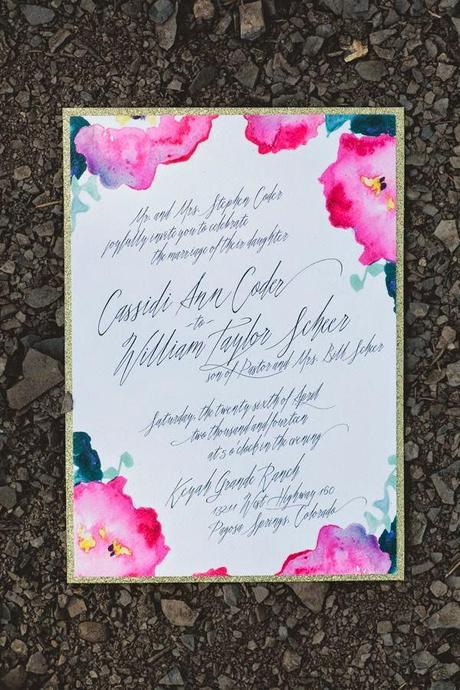 Mr. and Mrs. Stephen Coder
joyfully invite you to celebrate
the marriage of their daughter
Cassidi Ann Coder
-to-
William Taylor Scheer
son of Pastor and Mrs. Bill Scheer
Saturday, the twenty sixth of April
two thousand and fourteen
at 5 o'clock in the evening
Keyah Grande Ranch
13211 West Highway 160
Pagosa Springs, Colorado